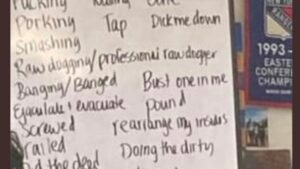 Porking Tap Dick me down
Smashing
Raw dogging/professional raw dogger
Banging/Banged Bust one in me
Ejaculate + evacuate Pound
Screwed rearrange my insides
railed Doing the dirty
the dead
NEW YORK
RANGERS
1993-
EASTE
CONFERE
CHAMP